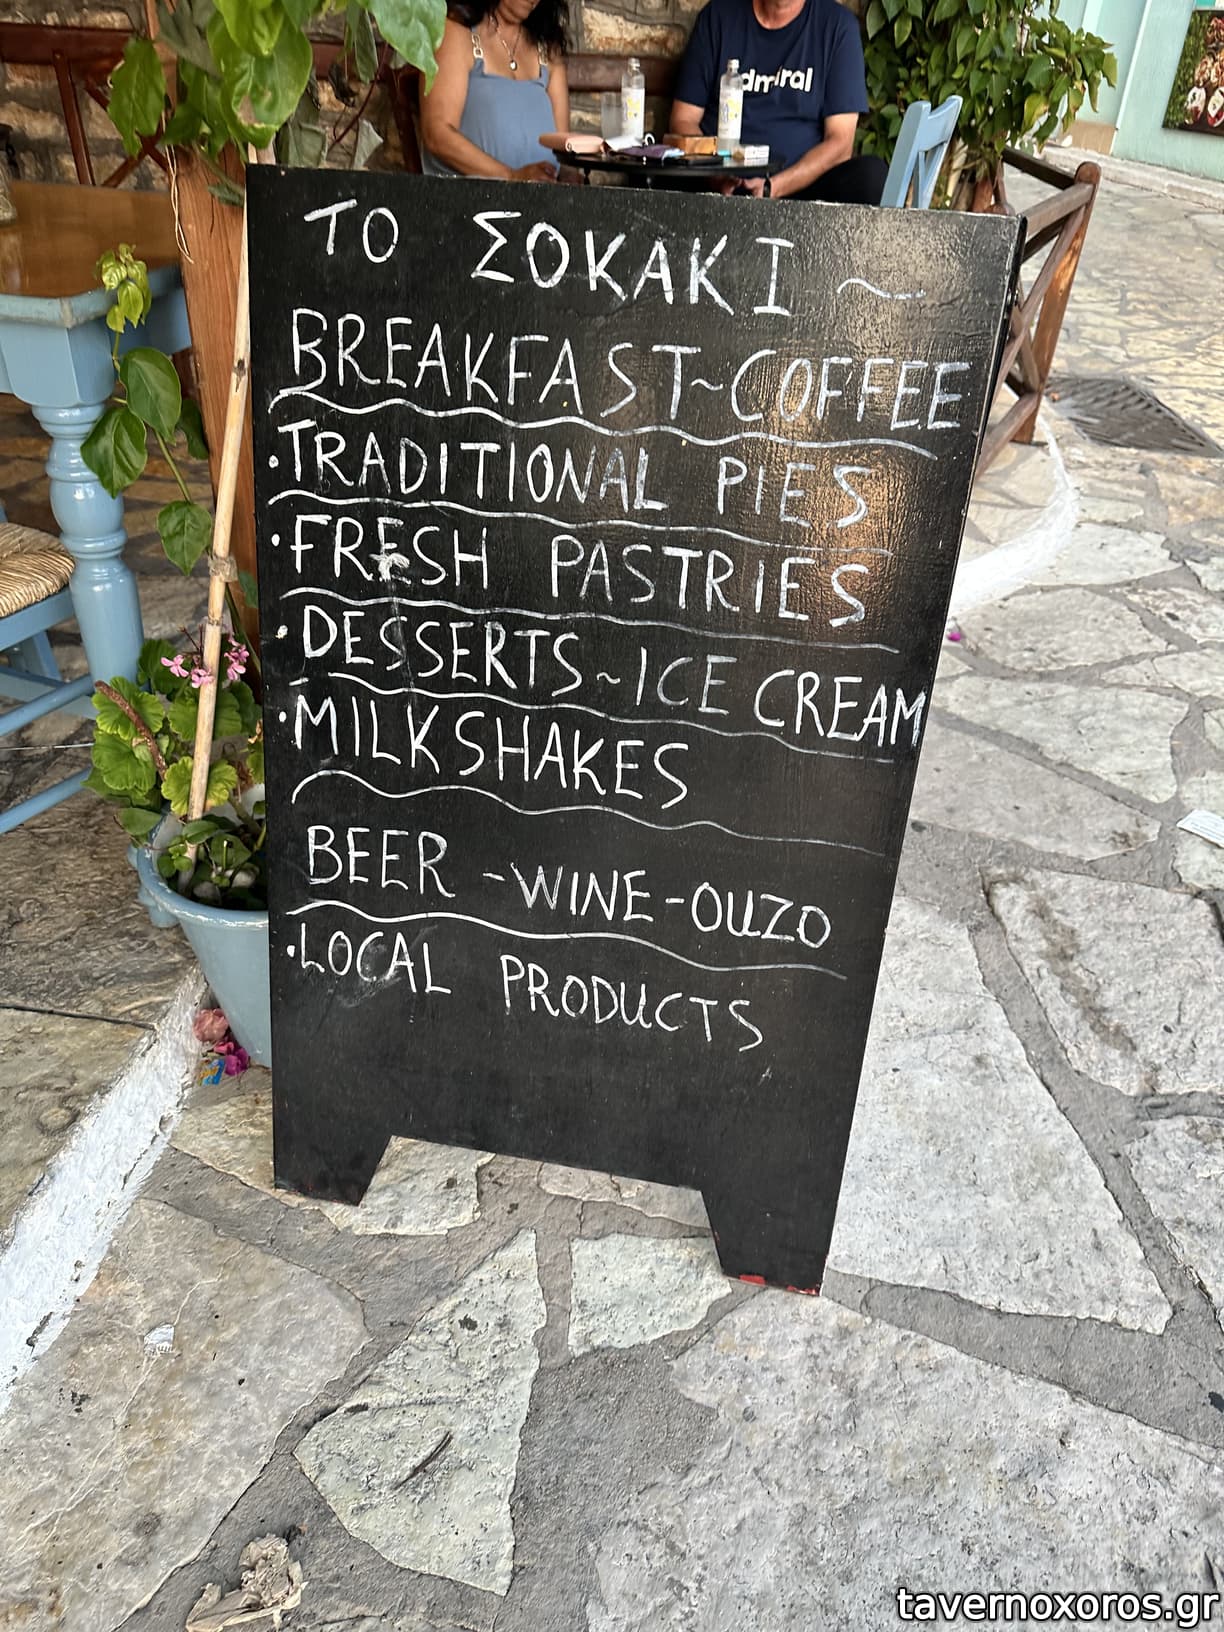 dmiral
ΤΟ ΣΟΚΑΚΙ ~
BREAKFAST~COFFEE
·TRADITIONAL PIES
·FRESH PASTRIES
·DESSERTS~ICE CREAM
·MILKSHAKES
BEER -WINE-OUZO
·LOCAL PRODUCTS
tavernoxoros.gr